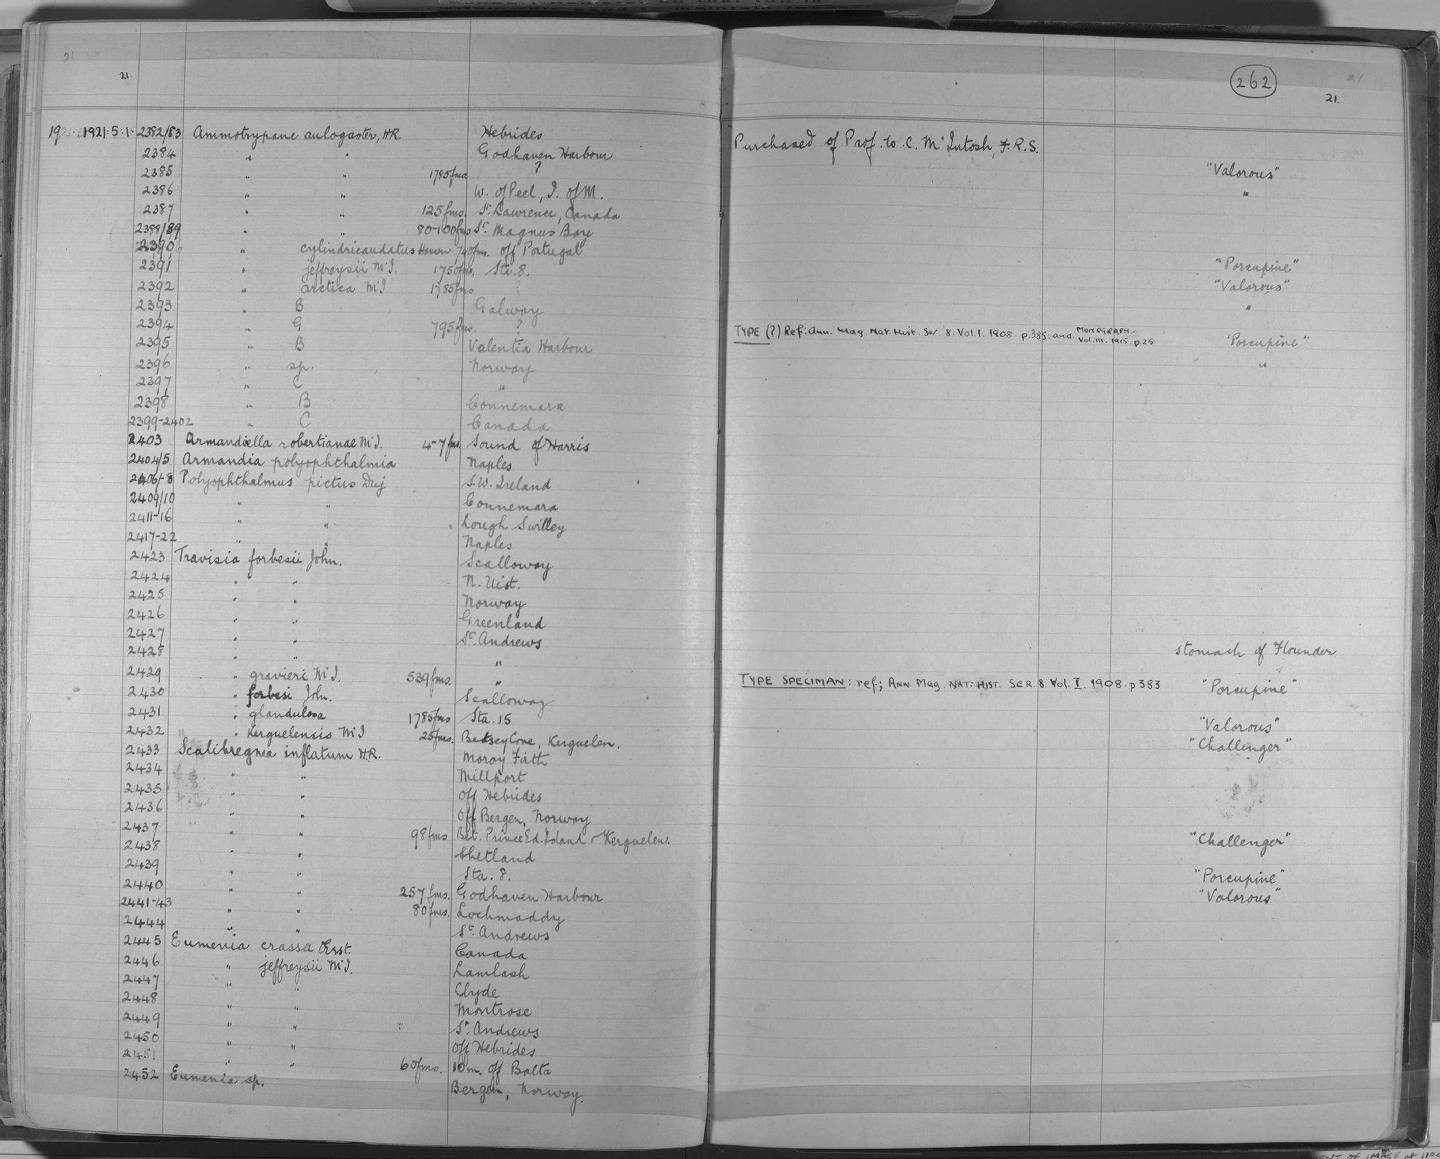 21
21.
262
21
21.
1921·5·1· 2382/83 Ammotrypane aulogaster, HR. Hebrides Purchased of Prof. W. C. McIntosh, F.R.S.
2384 " " Godhaven Harbour "Valorous"
2385 " " 1785 fms ? "
2386 " " W. of Peel, I. of M.
2387 " " 125 fms. St. Lawrence, Canada
2388/89 " " 80-100 fms St. Magnus Bay
2390 " cylindricaudatus Hansen 740 fms. off Portugal "Porcupine"
2391 " jeffreysii McI. 1750 fms. Sta. 8. "Valorous"
2392 " arctica McI 1785 fms ? "
2393 " B Galway
2394 " G 795 fms. ? TYPE (?) Ref: Ann. Mag. Nat. Hist. Ser 8. Vol. I. 1908. p. 385. and MONOGRAPH - Vol. III. 1915. p. 25. "Porcupine"
2395 " B Valentia Harbour
2396 " sp. Norway "
2397 " C "
2398 " B Connemara
2399-2402 " C Canada
2403 Armandiella robertianae McI. 4-7 fms Sound of Harris
2404/5 Armandia polyophthalmia Naples
2406-8 Polyophthalmus pictus Duj S.W. Ireland
2409/10 " " Connemara
2411-16 " " Lough Swilley
2417-22 " " Naples
2423 Travisia forbesii John. Scalloway
2424 " " N. Uist.
2425 " " Norway
2426 " " Greenland
2427 " " St. Andrews
2428 " " " stomach of Flounder
2429 " gravieri McI. 539 fms. " TYPE SPECIMAN: ref; ANN. MAG. NAT: HIST. SER. 8. Vol. I. 1908. p 383 "Porcupine"
2430 " forbesi John. Scalloway
2431 " glandulosa 1785 fms Sta. 15 "Valorous"
2432 " Kerguelensis McI 25 fms. Betsey Cove, Kerguelen. "Challenger"
2433 Scalibregma inflatum H.R. Moray Firth
2434 " " Millport
2435 " " Off Hebrides
2436 " " Off Bergen, Norway
2437 " " 98 fms Bet. Prince Ed. Island & Kerguelen. "Challenger"
2438 " " Shetland
2439 " " Sta. 8. "Porcupine"
2440 " " 257 fms. Godhaven Harbour "Valorous"
2441-43 " " 80 fms. Lochmaddy
2444 " " St. Andrews
2445 Eumenia crassa Œrst. Canada
2446 " jeffreysii McI. Lamlash
2447 " " Clyde
2448 " " Montrose
2449 " " St. Andrews
2450 " " Off Hebrides
2451 " " 60 fms. 10 m. off Balta
2452 Eumenia sp. Bergen, Norway.